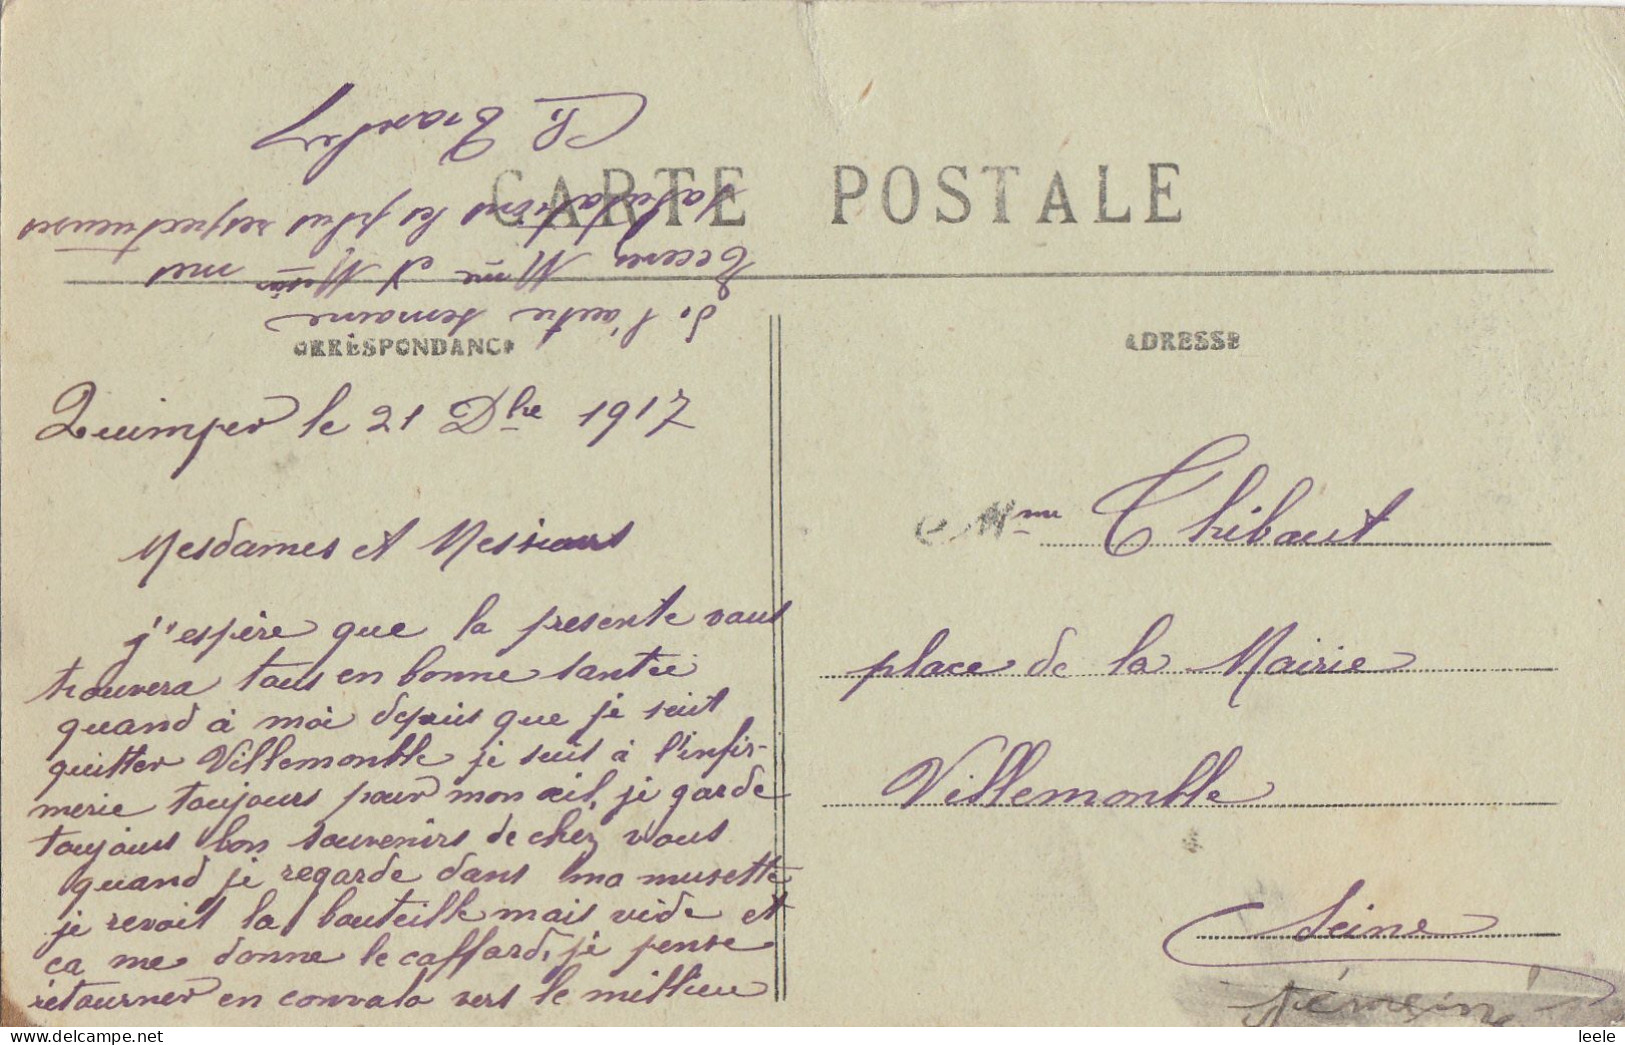 CARTE POSTALE
CORRESPONDANCE
ADRESSE
Quimper le 21 Dbre 1917
Mesdames et Messieurs
j'espère que la presente vous
trouvera tous en bonne santée
quand à moi depuis que je suit
quitter Villemomble je suis à l'infir-
merie toujours pour mon œil, je garde
toujours bon souvenirs de chez vous
quand je regarde dans ma musette
je revoit la bouteille mais vide et
ca me donne le caffard, je pense
retourner en convalo vers le millieu
de l'autre semaine
Recevez Mme et Messrs mes
salutations les plus respectueuses
Mme Thibaut
place de la Mairie
Villemomble
Seine
leele